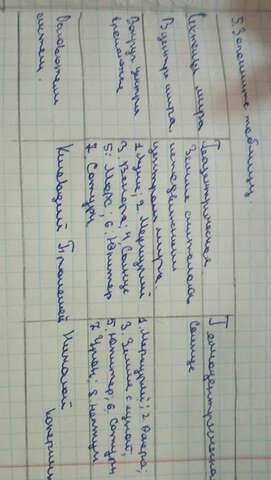 5. Заполните таблицу
Системы мира
Геоцентрическая
Гелиоцентрическая
В центре мира
Земля считалась
неподвижным
центром мира
Солнце
Вокруг центра
вращаются
1. Луна; 2. Меркурий
3. Венера; 4. Солнце
5. Марс; 6. Юпитер
7. Сатурн
1. Меркурий; 2. Венера;
3. Земля с луной;
5. Юпитер; 6. Сатурн
7. Уран; 8. Нептун
системы
Клавдий Птолемей
Николай Коперник